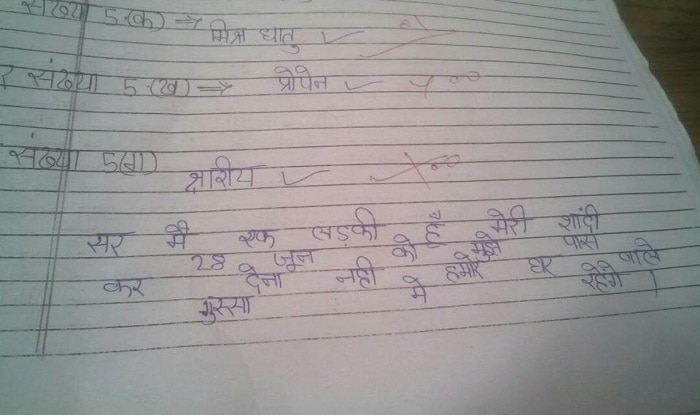 संख्या 5(क) → मिश्र धातु
संख्या 5(ख) → प्रोपेन
संख्या 5(ग)
क्षारीय
सर मै एक लड़की हूँ मेरी शादी
28 जून को है मुझे पास
कर देना नही हमारे घर वाले
गुस्सा मे रहेंगे ।